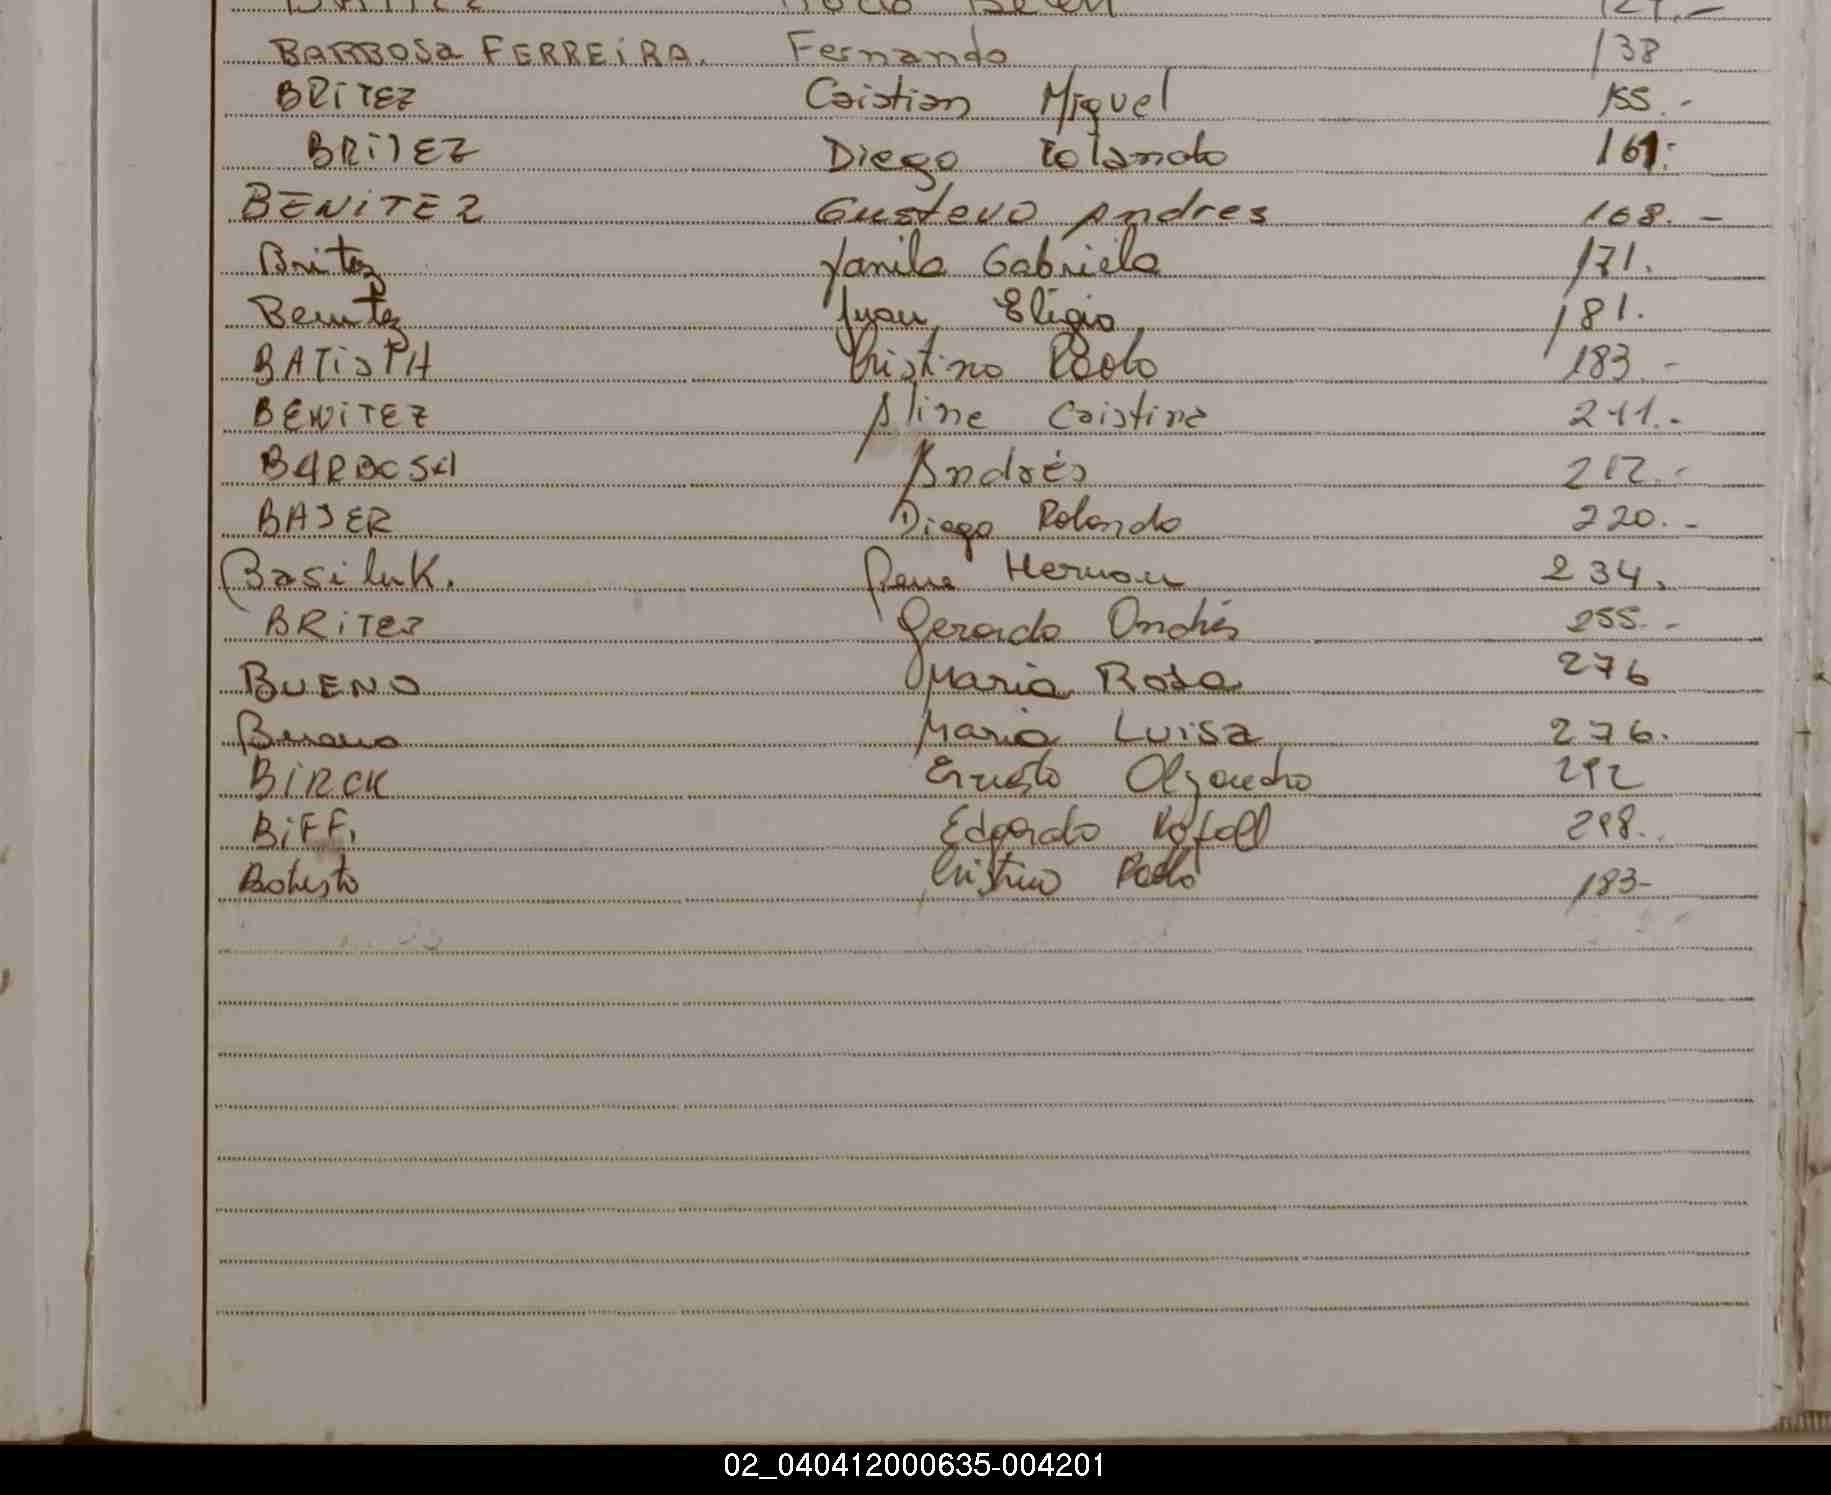 BARBOSA FERREIRA. Fernando 138
BRITEZ Cristian Miguel 155.-
BRITEZ Diego Rolando 161.-
BENITEZ Gustavo Andres 168.-
Britez Yanila Gabriela 171.
Benitez Juan Eligio 181.
BATISTA Cristino Paolo 183.-
BENITEZ Aline Cristina 211.-
BARBOSA Andrés 212.-
BAJER Diego Rolando 220.-
Basiluk. Rene Hernan 234.
BRITEZ Gerardo Andrés 255.-
BUENO Maria Rosa 276
Bueno Maria Luisa 276.
BIRCK Ernesto Alejandro 292
BIFFI Edgardo Rafael 298.
Batista Cristino Paolo 183-
02_040412000635-004201